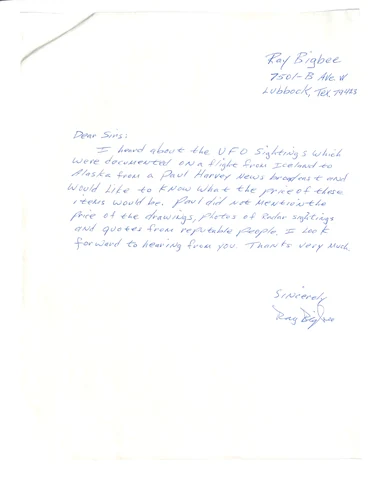 Ray Bigbee
7501-B Ave. W
Lubbock, Tex. 79423
Dear Sirs:
I heard about the UFO Sightings which
were documented on a flight from Iceland to
Alaska from a Paul Harvey News broadcast and
would like to know what the price of these
items would be. Paul did not mention the
price of the drawings, photos of Radar sightings
and quotes from reputable people. I look
forward to hearing from you. Thanks very much.
Sincerely
Ray Bigbee